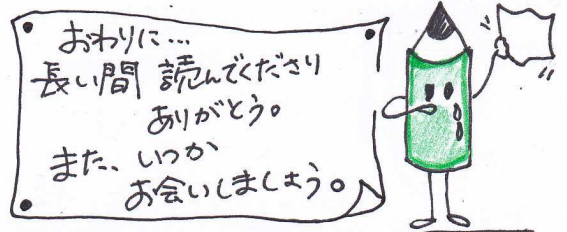 おわりに…
長い間 読んでくださり
ありがとう。
また、いつか
お会いしましょう。